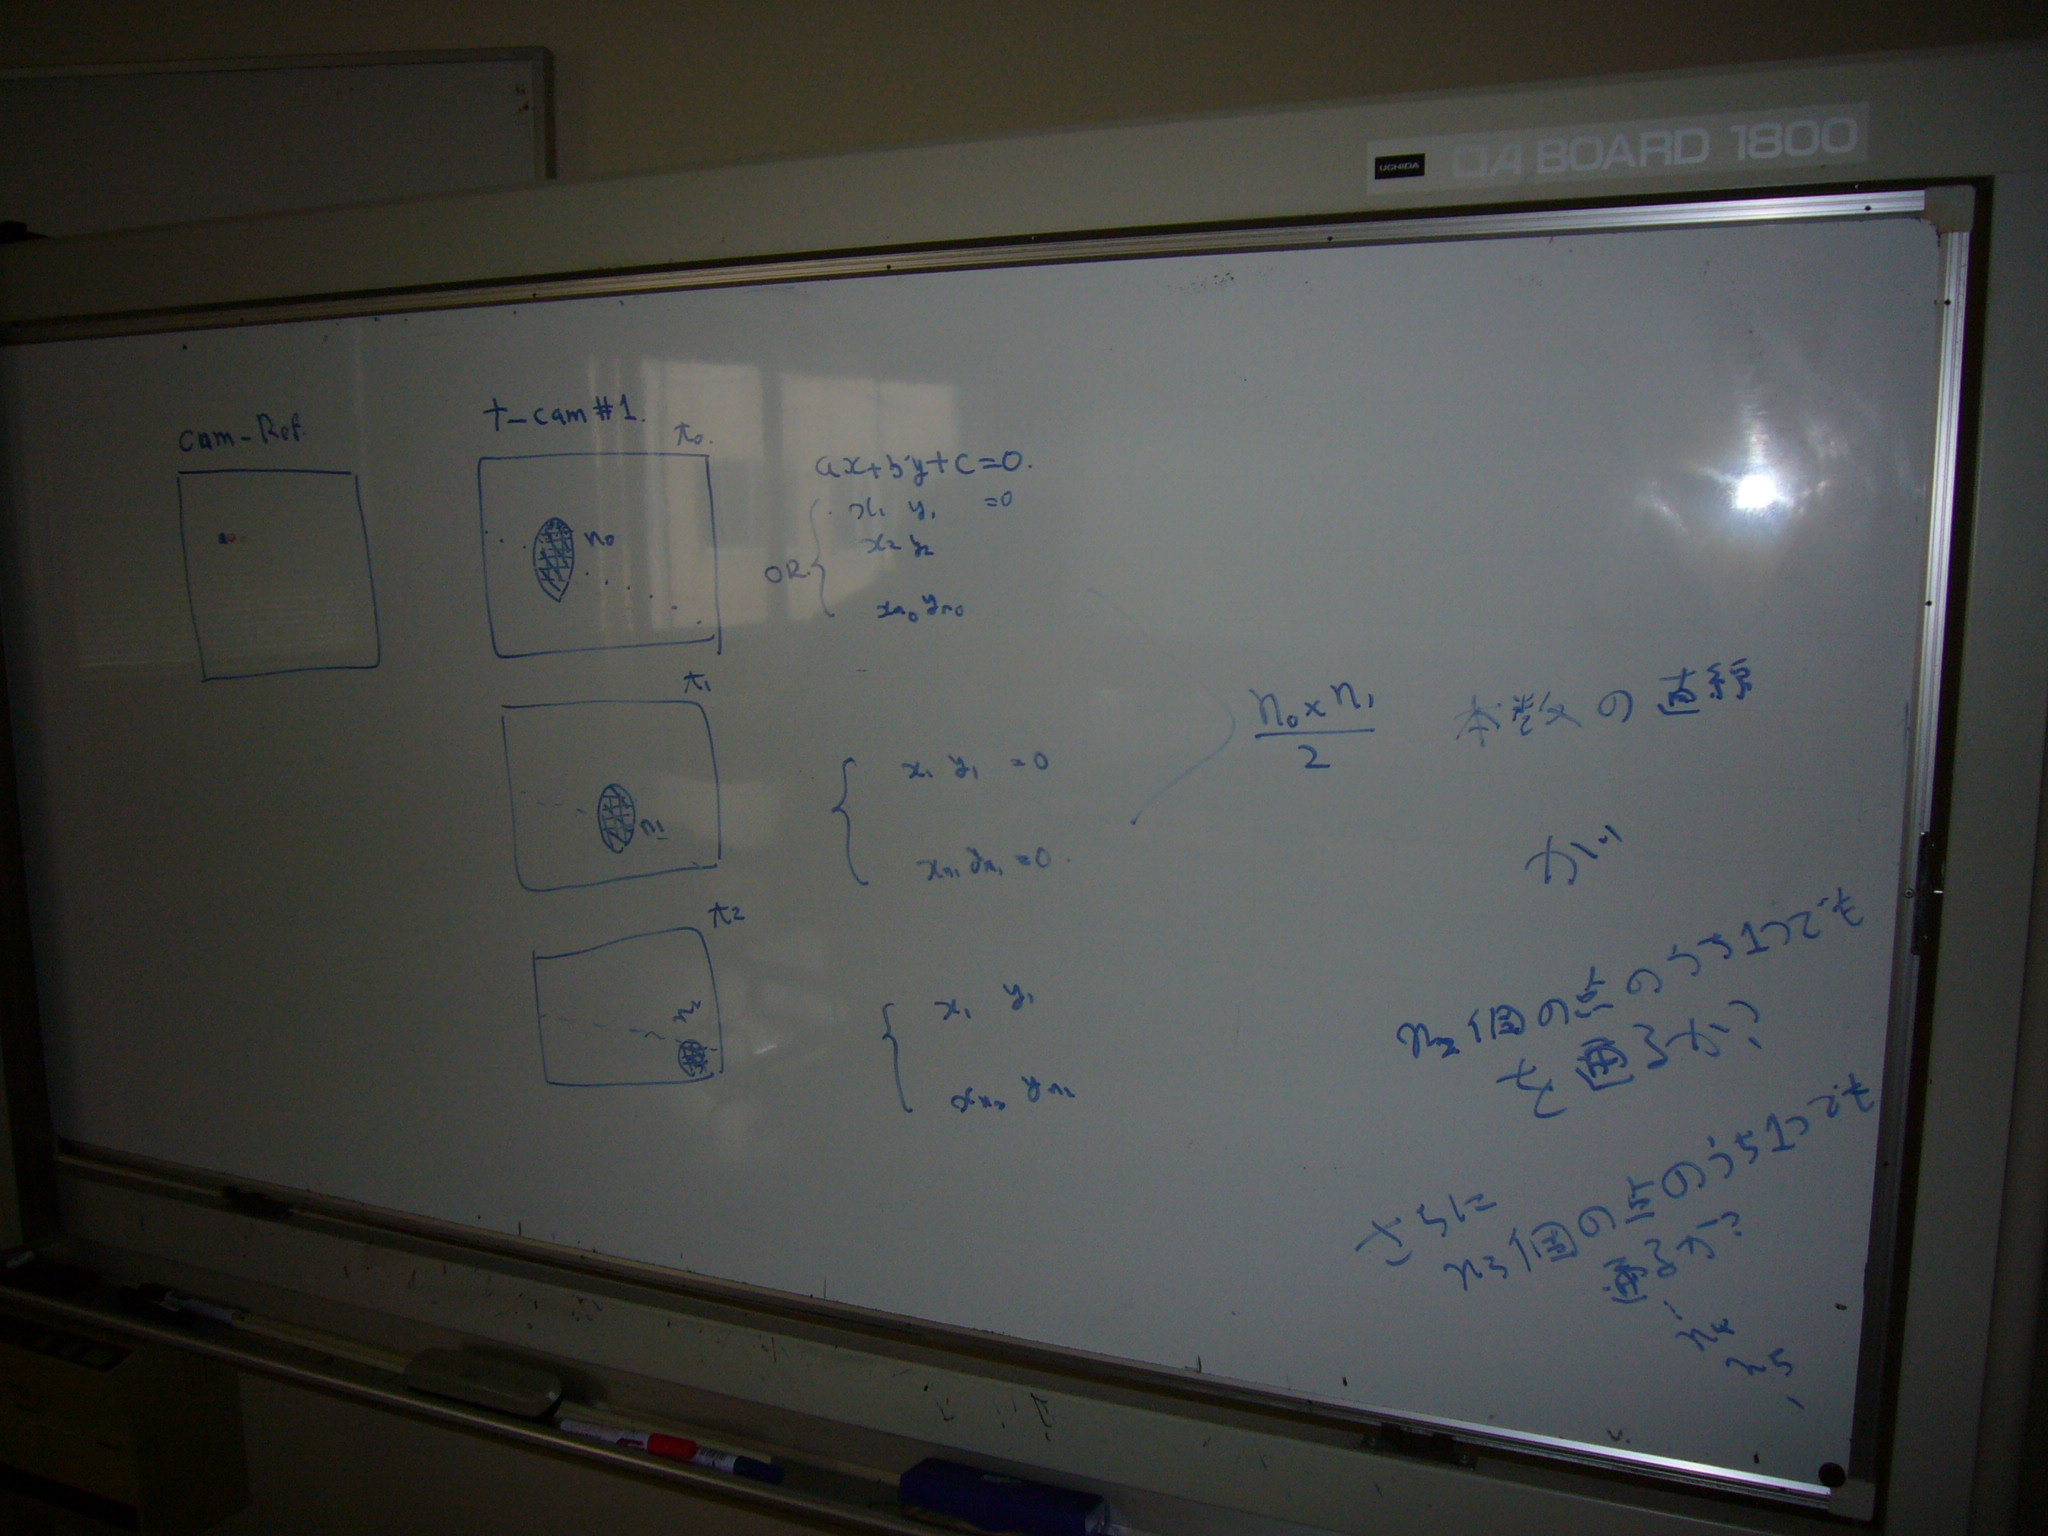 UCHIDA OA BOARD 1800
cam-Ref.
t-cam#1.
π0.
n0
ax+by+c=0.
OR
x1 y1 =0
x2 y2
xn0 yn0
π1
n1
x1 y1 =0
xn1 yn1 =0
π2
n2
x1 y1
xn2 yn2
n0×n1
2
本数の直線
が
n2個の点のうち1つでも
を通るか?
さらに
n3個の点のうち1つでも
通るか?
n4
n5